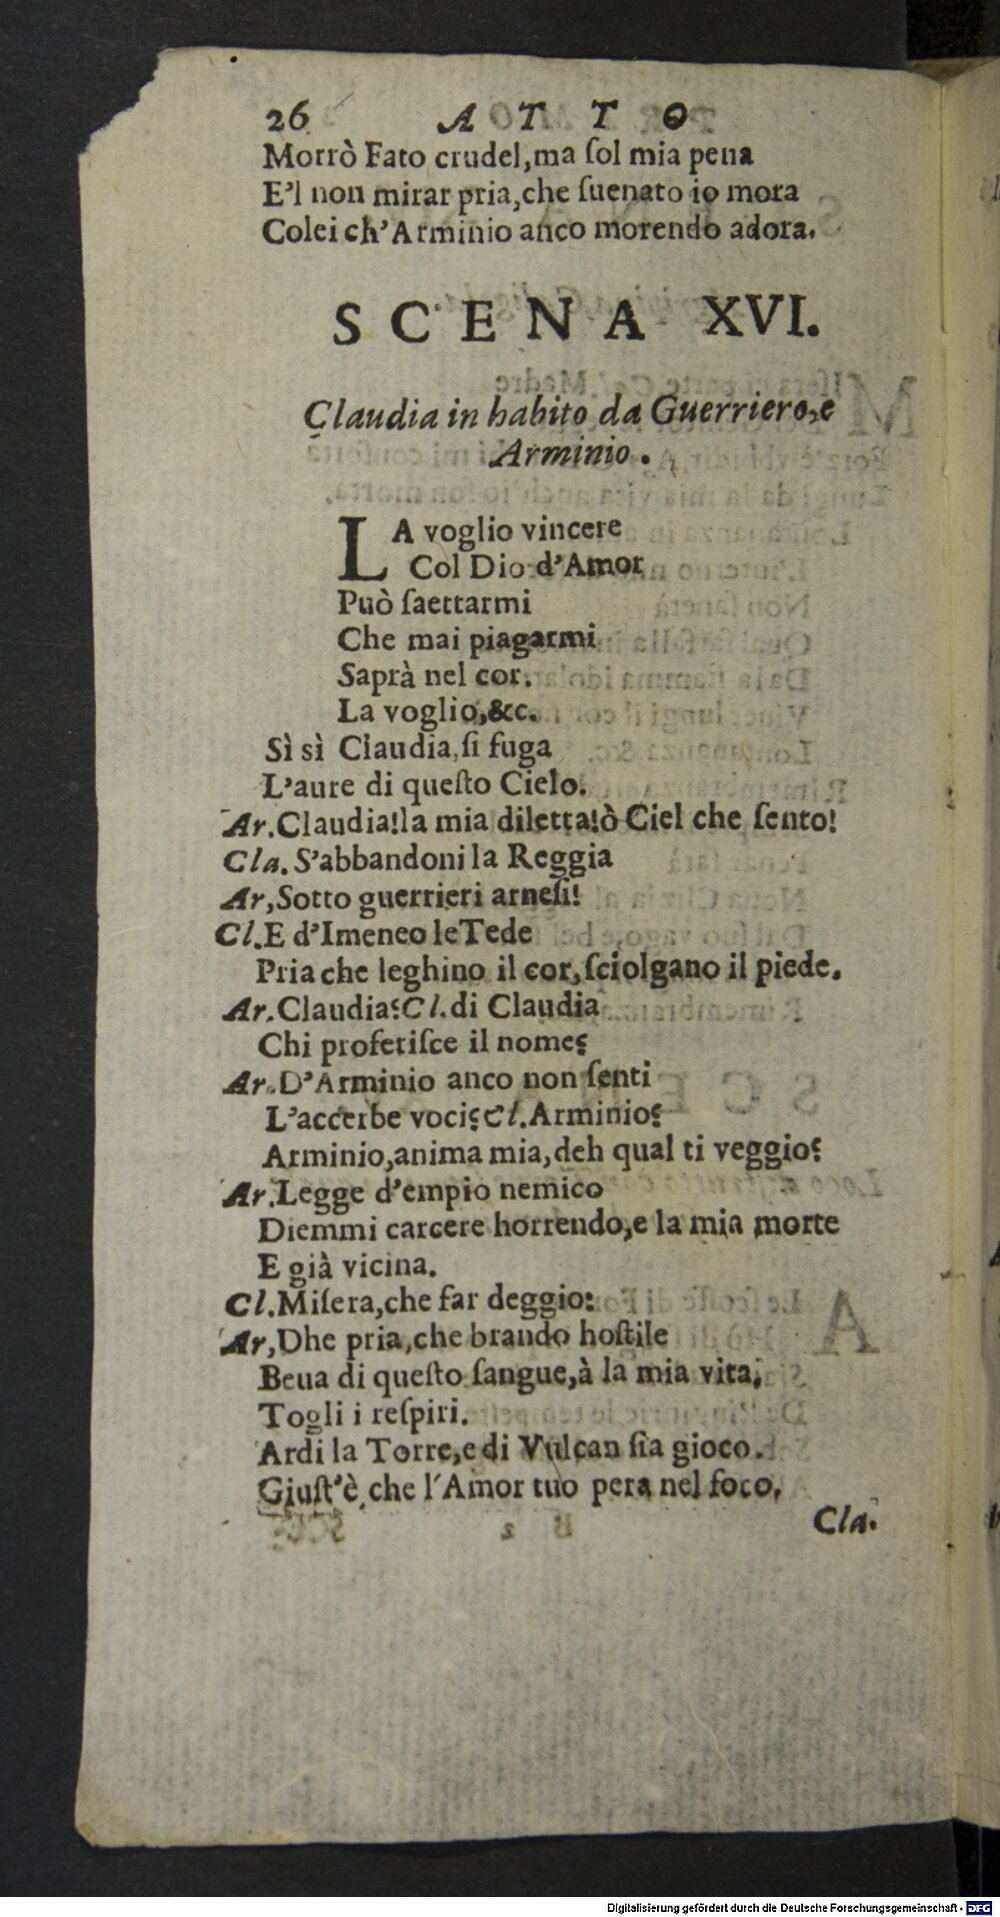 26 ATTO
Morrò Fato crudel, ma ſol mia pena
E'l non mirar pria, che ſuenato io mora
Colei ch'Arminio anco morendo adora.
SCENA XVI.
Claudia in habito da Guerriero, e
Arminio.
LA voglio vincere
Col Dio d'Amor
Può ſaettarmi
Che mai piagarmi
Saprà nel cor.
La voglio, &c.
Sì sì Claudia, ſi fuga
L'aure di queſto Cielo.
Ar. Claudia! la mia diletta! ò Ciel che ſento!
Cla. S'abbandoni la Reggia
Ar, Sotto guerrieri arneſi!
Cl. E d'Imeneo le Tede
Pria che leghino il cor, ſciolgano il piede.
Ar. Claudia? Cl. di Claudia
Chi proferiſce il nome?
Ar. D'Arminio anco non ſenti
L'accerbe voci? Cl. Arminio?
Arminio, anima mia, deh qual ti veggio?
Ar. Legge d'empio nemico
Diemmi carcere horrendo, e la mia morte
E già vicina.
Cl. Miſera, che far deggio:
Ar, Dhe pria, che brando hoſtile
Beua di queſto ſangue, à la mia vita,
Togli i reſpiri.
Ardi la Torre, e di Vulcan ſia gioco.
Giuſt'è che l'Amor tuo pera nel foco,
Cla.
Digitalisierung gefördert durch die Deutsche Forschungsgemeinschaft - DFG